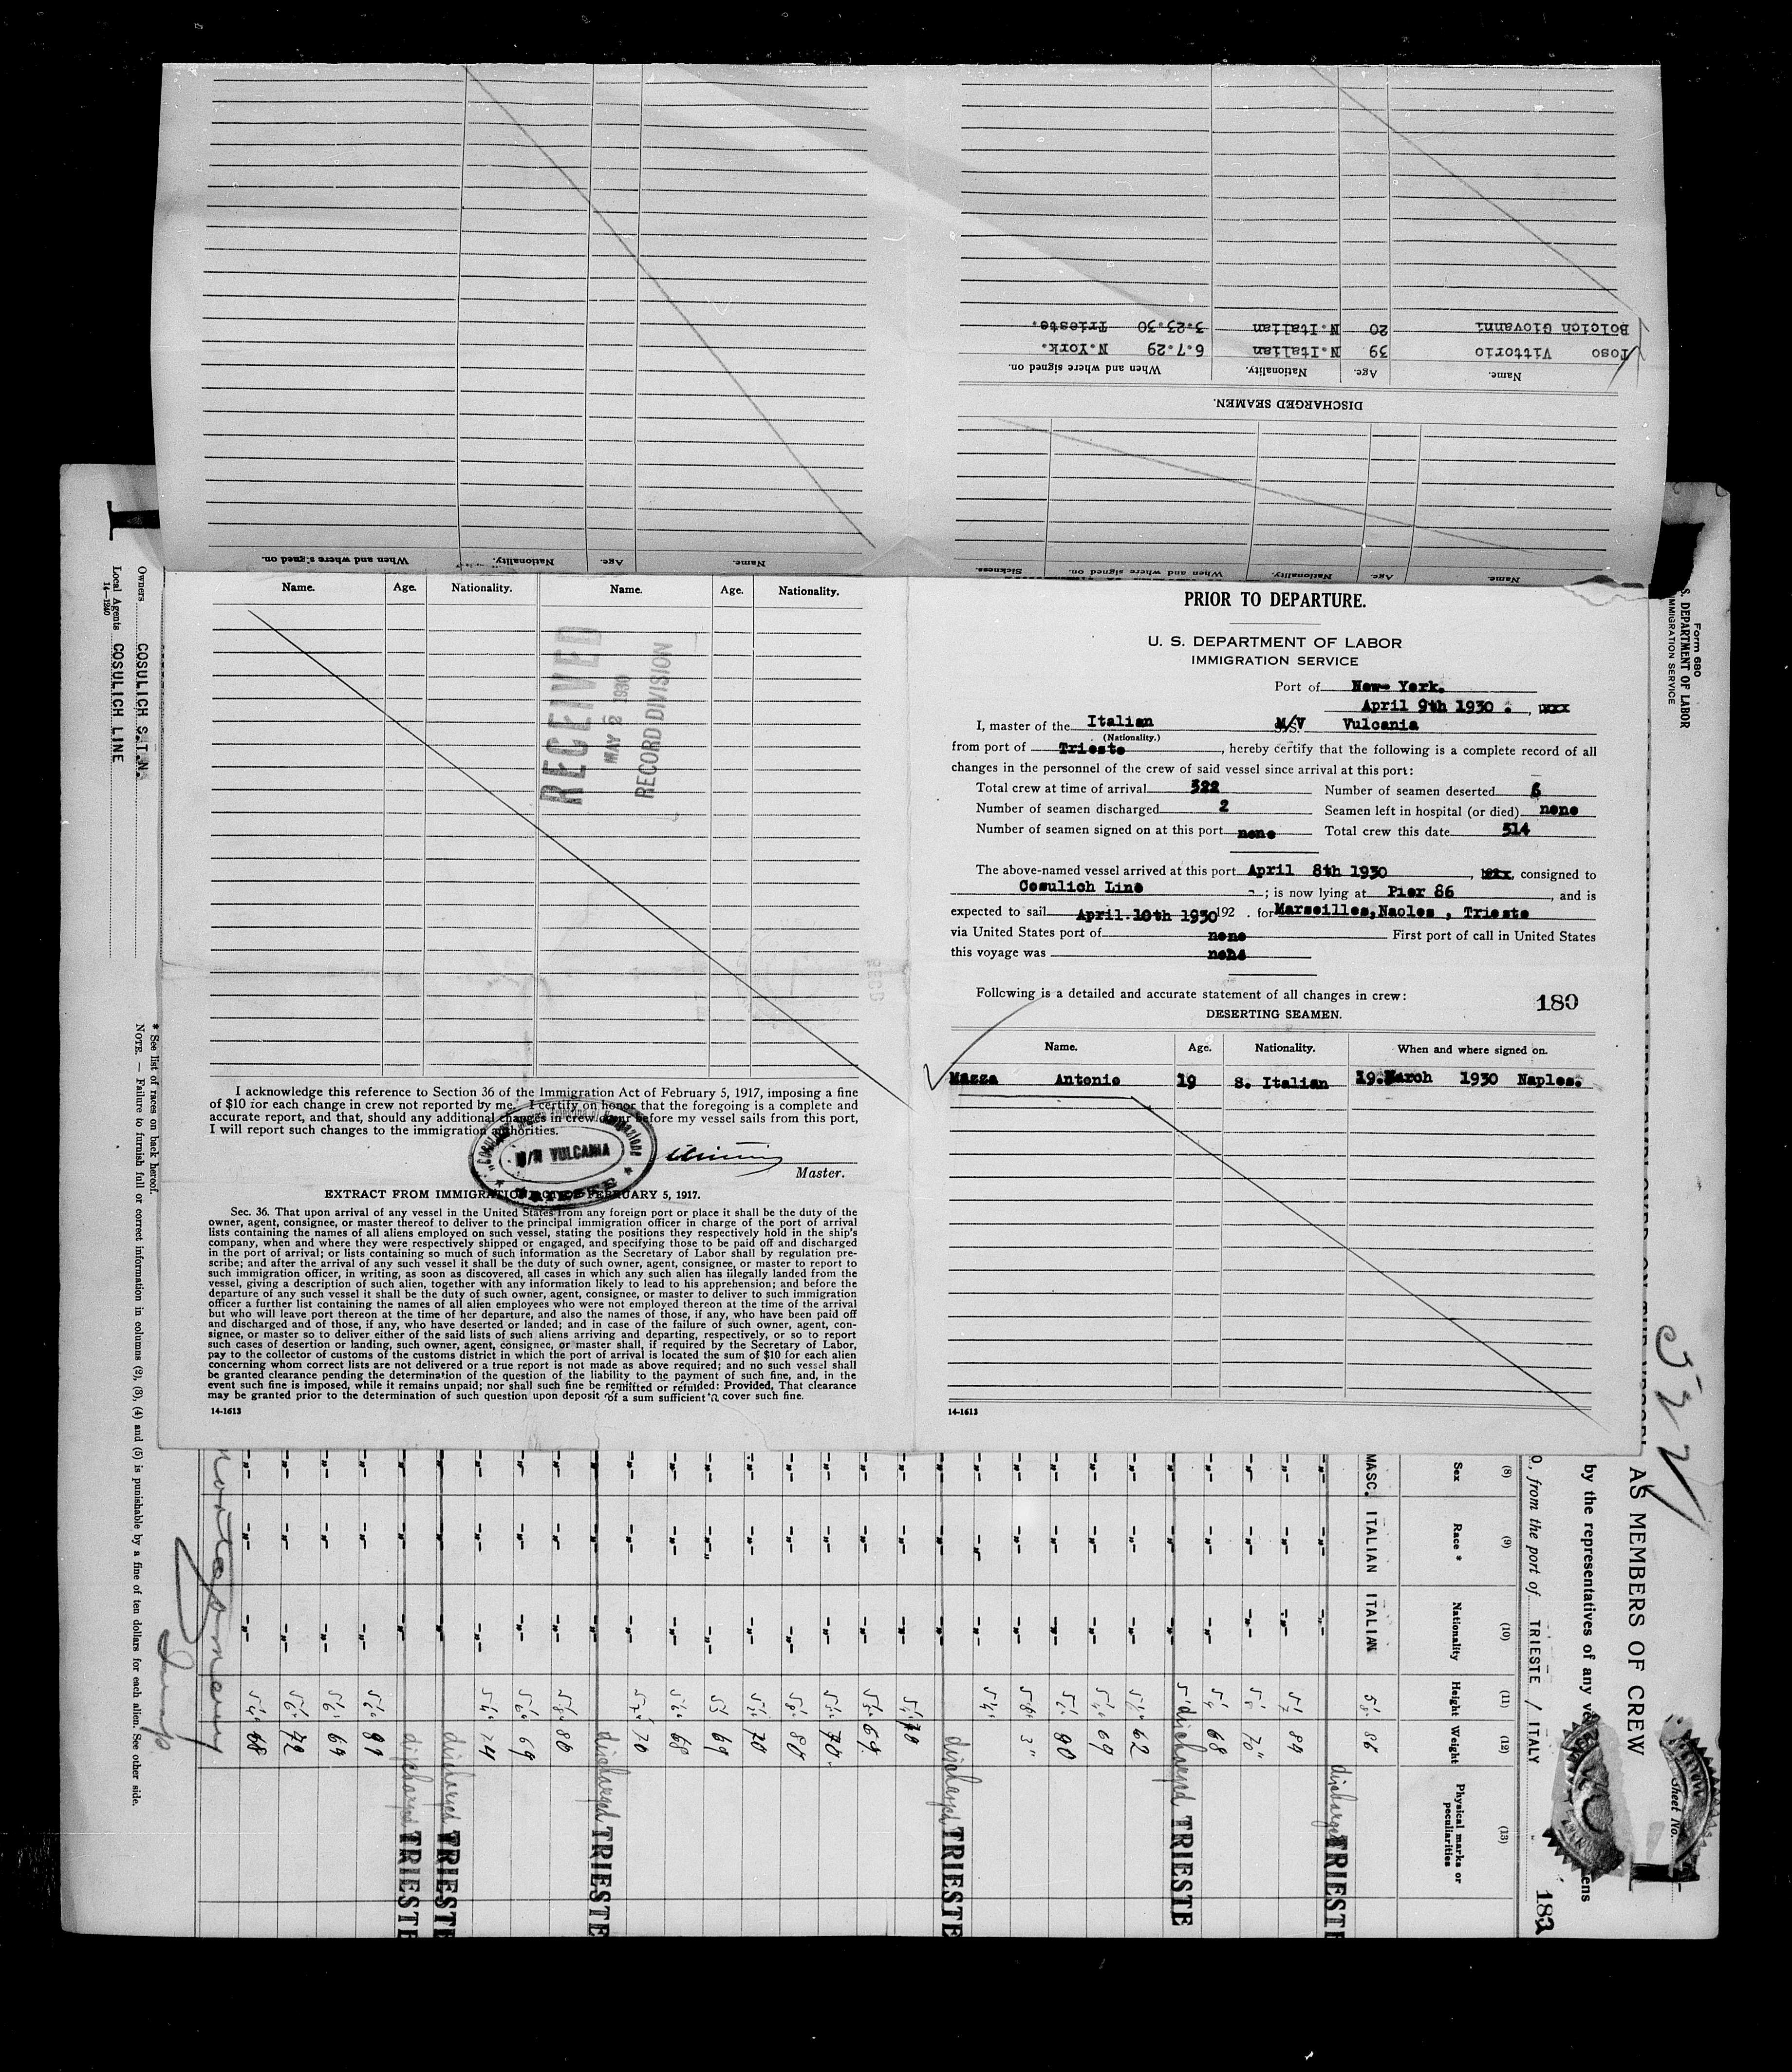 Name. Age. Nationality. Name. Age. Nationality.
RECEIVED
MAY 2 1930
RECORD DIVISION
I acknowledge this reference to Section 36 of the Immigration Act of February 5, 1917, imposing a fine
of $10 for each change in crew not reported by me. I certify on honor that the foregoing is a complete and
accurate report, and that, should any additional changes in crew occur before my vessel sails from this port,
I will report such changes to the immigration authorities.
M/N VULCANIA
TRIESTE
Master.
EXTRACT FROM IMMIGRATION ACT OF FEBRUARY 5, 1917.
Sec. 36. That upon arrival of any vessel in the United States from any foreign port or place it shall be the duty of the
owner, agent, consignee, or master thereof to deliver to the principal immigration officer in charge of the port of arrival
lists containing the names of all aliens employed on such vessel, stating the positions they respectively hold in the ship's
company, when and where they were respectively shipped or engaged, and specifying those to be paid off and discharged
in the port of arrival; or lists containing so much of such information as the Secretary of Labor shall by regulation pre-
scribe; and after the arrival of any such vessel it shall be the duty of such owner, agent, consignee, or master to report to
such immigration officer, in writing, as soon as discovered, all cases in which any such alien has illegally landed from the
vessel, giving a description of such alien, together with any information likely to lead to his apprehension; and before the
departure of any such vessel it shall be the duty of such owner, agent, consignee, or master to deliver to such immigration
officer a further list containing the names of all alien employees who were not employed thereon at the time of the arrival
but who will leave port thereon at the time of her departure, and also the names of those, if any, who have been paid off
and discharged and of those, if any, who have deserted or landed; and in case of the failure of such owner, agent, con-
signee, or master so to deliver either of the said lists of such aliens arriving and departing, respectively, or so to report
such cases of desertion or landing, such owner, agent, consignee, or master shall, if required by the Secretary of Labor,
pay to the collector of customs of the customs district in which the port of arrival is located the sum of $10 for each alien
concerning whom correct lists are not delivered or a true report is not made as above required; and no such vessel shall
be granted clearance pending the determination of the question of the liability to the payment of such fine, and, in the
event such fine is imposed, while it remains unpaid; nor shall such fine be remitted or refunded: Provided, That clearance
may be granted prior to the determination of such question upon deposit of a sum sufficient to cover such fine.
14-1613
PRIOR TO DEPARTURE.
U. S. DEPARTMENT OF LABOR
IMMIGRATION SERVICE
Port of New-York.
April 9th 1930 . , xxx
I, master of the Italian M/V Vulcania
(Nationality.)
from port of Trieste, hereby certify that the following is a complete record of all
changes in the personnel of the crew of said vessel since arrival at this port:
Total crew at time of arrival 522 Number of seamen deserted 6
Number of seamen discharged 2 Seamen left in hospital (or died) none
Number of seamen signed on at this port none Total crew this date 514
The above-named vessel arrived at this port April 8th 1930, consigned to
Cosulich Line ; is now lying at Pier 86, and is
expected to sail April.10th 1930 192 . for Marseilles,Naoles , Trieste
via United States port of none First port of call in United States
this voyage was none
Following is a detailed and accurate statement of all changes in crew:
180
DESERTING SEAMEN.
Name. Age. Nationality. When and where signed on.
Mazza Antonio 19 S. Italian 19.March 1930 Naples.
14-1613
DISCHARGED SEAMEN.
Name. Age. Nationality. When and where signed on.
Toso Vittorio 39 N.Italian 6.7.29 N.York.
Bolcich Giovanni 20 N.Italian 3.23.30 Trieste.
Name. Age. Nationality. When and where signed on. Sickness.
Name. Age. Nationality. When and where signed on.
Form 680
S. DEPARTMENT OF LABOR
IMMIGRATION SERVICE
522
AS MEMBERS OF CREW
Sheet No.
by the representatives of any ve
ens
0, from the port of TRIESTE / ITALY
183
(8) (9) (10) (11) (12) (13)
Sex Race * Nationality Height Weight Physical marks or peculiarities
MASC. ITALIAN ITALIAN 86
discharged TRIESTE
89
70
68
discharged TRIESTE
62
69
80
discharged TRIESTE
70
80
70
69
68
70
discharged TRIESTE
80
69
74
discharged TRIESTE
discharged TRIESTE
69
72
68
* See list of races on back hereof.
NOTE. — Failure to furnish full or correct information in columns (2), (3), (4) and (5) is punishable by a fine of ten dollars for each alien. See other side.
Owners COSULICH S.T.N.
Local Agents COSULICH LINE
14—1240